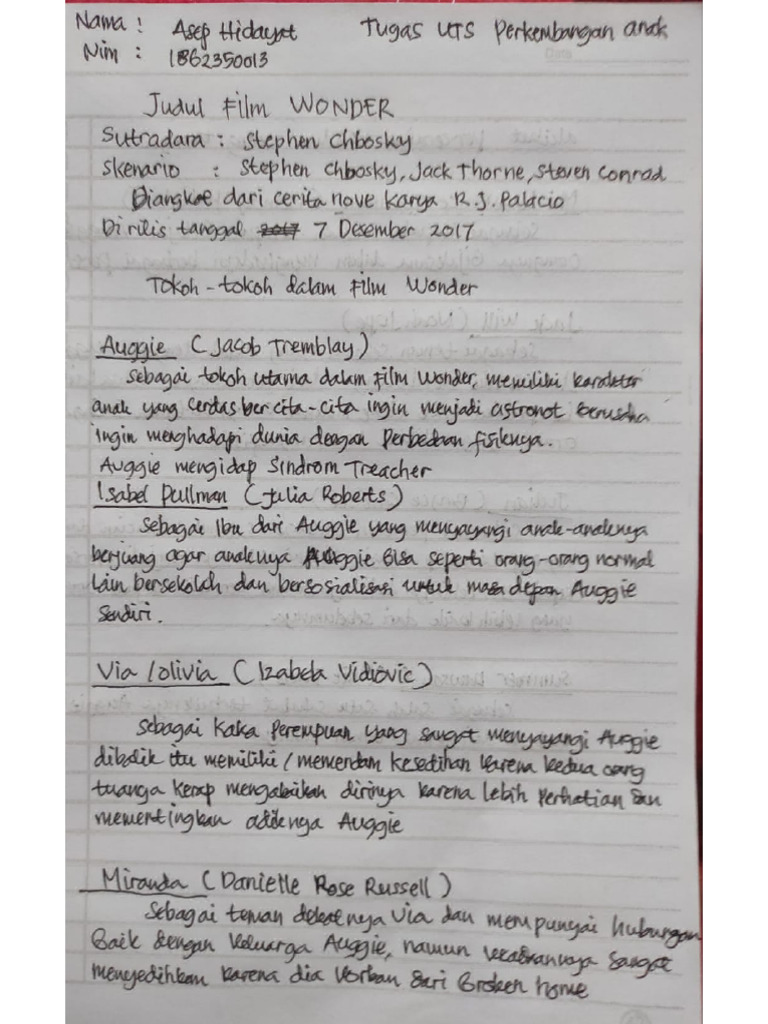 Nama : Asep Hidayat Tugas UTS Perkembangan anak
Nim : 1862350013
Judul Film WONDER
Sutradara : Stephen Chbosky
Skenario : Stephen Chbosky, Jack Thorne, Steven Conrad
Diangkat dari cerita nove karya R.J. Palacio
Di rilis tanggal 2017 7 Desember 2017
Tokoh-tokoh dalam Film Wonder
Auggie (Jacob Tremblay)
Sebagai tokoh utama dalam Film Wonder, memiliki karakter
anak yang cerdas ber cita-cita ingin menjadi astronot berusaha
ingin menghadapi dunia dengan Perbedaan fisiknya.
Auggie mengidap Sindrom Treacher
Isabel Pullman (Julia Roberts)
Sebagai Ibu dari Auggie yang menyayangi anak-anaknya
berjuang agar anaknya Auggie Bisa seperti orang-orang normal
lain bersekolah dan bersosialisasi untuk masa depan Auggie
Sendiri.
Via /olivia (Izabela Vidiovic)
Sebagai Kaka Perempuan yang sangat menyayangi Auggie
dibalik itu memiliki / memendam kesedihan karena kedua orang
tuanga kerap mengabaikan dirinya karena lebih Perhatian dan
mementingkan adiknya Auggie
Miranda (Danielle Rose Russell)
Sebagai teman dekatnya Via dan mempunyai hubungan
Baik dengan keluarga Auggie, namun sangat
menyedihkan karena dia korban dari Broken home